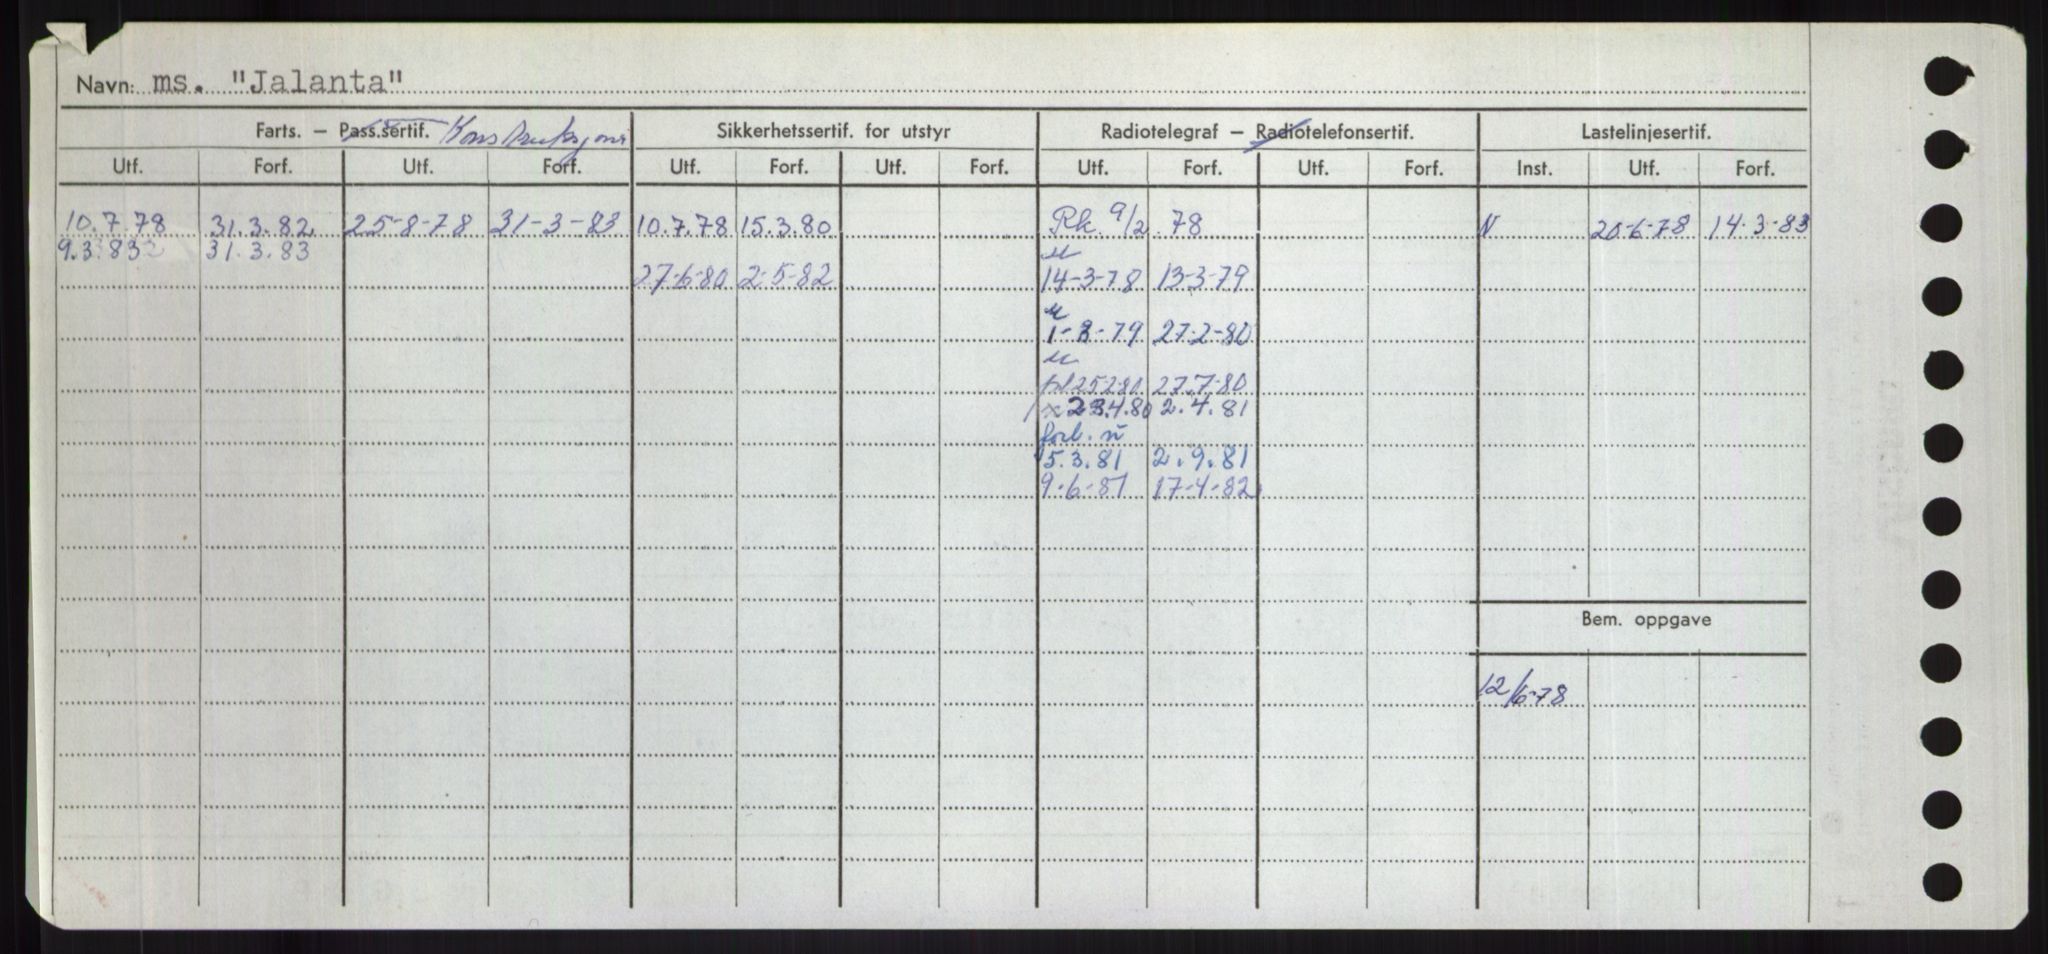 Navn: ms. "Jalanta"
Farts. – Pass.sertif. Konstruksjons Sikkerhetssertif. for utstyr Radiotelegraf – Radiotelefonsertif. Lastelinjesertif.
Utf. Forf. Utf. Forf. Utf. Forf. Utf. Forf. Utf. Forf. Utf. Forf. Inst. Utf. Forf.
10.7.78 31.3.82 25-8-78 31-3-83 10.7.78 15.3.80 Rk. 9/2 78 N 20-6-78 14-3-83
9.3.83 31.3.83
27-6-80 2-5-82 14-3-78 13-3-79
1-3-79 27-2-80
25.2.80 27.7-80
23.4.80 2.4.81
forl.
5.3.81 2.9.81
9-6-81 17-4-82
Bem. oppgave
12/6-78